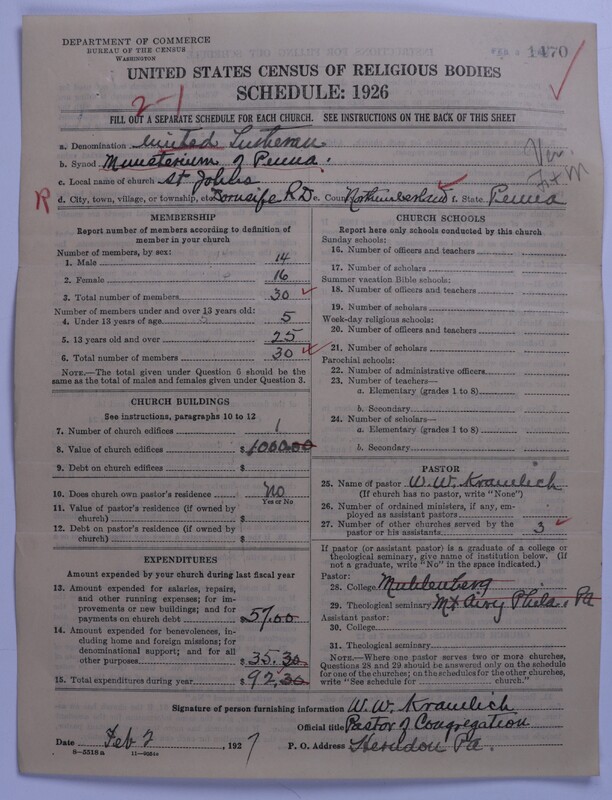 DEPARTMENT OF COMMERCE
BUREAU OF THE CENSUS
WASHINGTON
1470
UNITED STATES CENSUS OF RELIGIOUS BODIES
SCHEDULE: 1926
2-1
FILL OUT A SEPARATE SCHEDULE FOR EACH CHURCH. SEE INSTRUCTIONS ON THE BACK OF THIS SHEET
a. Denomination United Lutheran
b. Synod Ministerium of Penna.
c. Local name of church St Johns
R d. City, town, village, or township, etc. Dornsife R D e. County Northumberland f. State Penna
MEMBERSHIP
Report number of members according to definition of member in your church
Number of members, by sex:
1. Male 14
2. Female 16
3. Total number of members 30
Number of members under and over 13 years old:
4. Under 13 years of age 5
5. 13 years old and over 25
6. Total number of members 30
NOTE.—The total given under Question 6 should be the same as the total of males and females given under Question 3.
CHURCH BUILDINGS
See instructions, paragraphs 10 to 12
7. Number of church edifices 1
8. Value of church edifices $ 1000.00
9. Debt on church edifices $
10. Does church own pastor's residence No
Yes or No
11. Value of pastor's residence (if owned by church) $
12. Debt on pastor's residence (if owned by church) $
EXPENDITURES
Amount expended by your church during last fiscal year
13. Amount expended for salaries, repairs, and other running expenses; for improvements or new buildings; and for payments on church debt $ 57.00
14. Amount expended for benevolences, including home and foreign missions; for denominational support; and for all other purposes $ 35.30
15. Total expenditures during year $ 92.30
CHURCH SCHOOLS
Report here only schools conducted by this church
Sunday schools:
16. Number of officers and teachers
17. Number of scholars
Summer vacation Bible schools:
18. Number of officers and teachers
19. Number of scholars
Week-day religious schools:
20. Number of officers and teachers
21. Number of scholars
Parochial schools:
22. Number of administrative officers
23. Number of teachers—
a. Elementary (grades 1 to 8)
b. Secondary
24. Number of scholars—
a. Elementary (grades 1 to 8)
b. Secondary
PASTOR
25. Name of pastor W. W. Kramlich
(If church has no pastor, write "None")
26. Number of ordained ministers, if any, employed as assistant pastors
27. Number of other churches served by the pastor or his assistants 3
If pastor (or assistant pastor) is a graduate of a college or theological seminary, give name of institution below. (If not a graduate, write "No" in the space indicated.)
Pastor:
28. College Muhlenberg
29. Theological seminary Mt Airy Phila Pa
Assistant pastor:
30. College
31. Theological seminary
NOTE.—Where one pastor serves two or more churches, Questions 28 and 29 should be answered only on the schedule for one of the churches; on the schedules for the other churches, write "See schedule for church."
Signature of person furnishing information W. W. Kramlich
Official title Pastor of Congregation
Date Feb 2, 1927 P. O. Address Herndon Pa.
8—5518 a